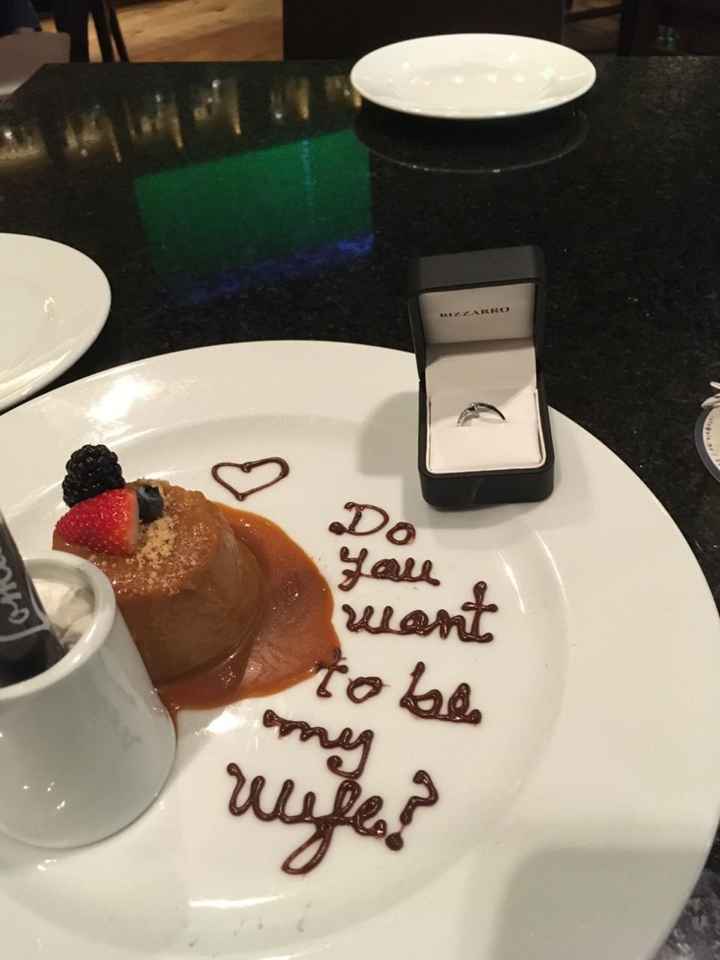 BIZZARRO
Do
you
want
to be
my
wife?